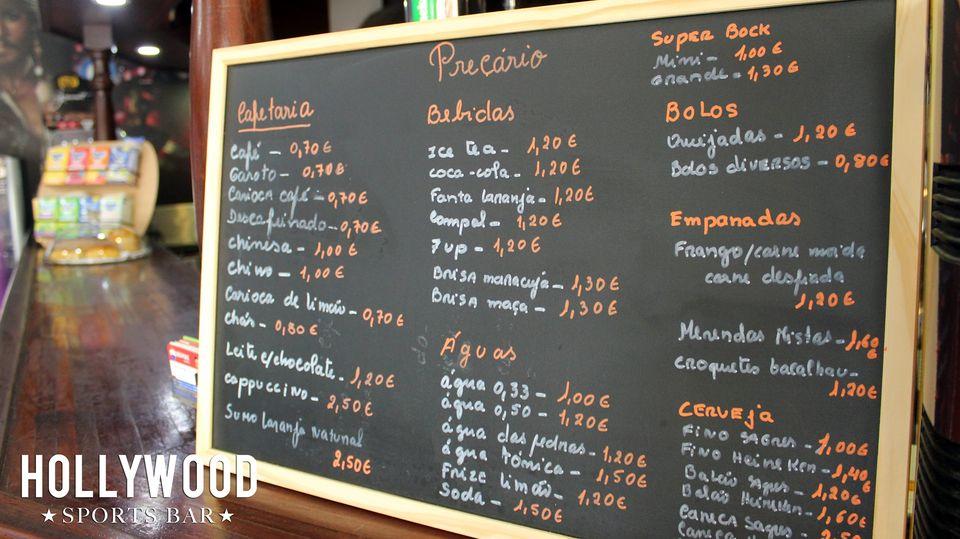 Preçário
Cafetaria
Café - 0,70 €
Garoto - 0,70€
Carioca café - 0,70€
Descafeinado - 0,70€
chinesa - 1,00 €
chino - 1,00 €
Carioca de limão - 0,70€
chás - 0,80 €
Leite c/chocolate - 1,20€
cappuccino - 2,50€
Sumo Laranja Natural
2,50€
Bebidas
Ice tea - 1,20€
coca-cola - 1,20€
Fanta laranja - 1,20€
Compal - 1,20€
7up - 1,20€
Brisa maracujá - 1,30€
Brisa maça - 1,30€
Águas
água 0,33 - 1,00€
água 0,50 - 1,20€
água das pedras - 1,20€
água tónica - 1,50€
Frize limão - 1,20€
Soda - 1,50€
Super Bock
Mini - 1,00 €
Grande - 1,30€
Bolos
Queijadas - 1,20 €
Bolos diversos - 0,80€
Empanadas
Frango/carne moida
carne desfiada
1,20€
Merendas Mistas - 1,60
€
croquetes bacalhau -
1,20€
Cerveja
Fino Sagres - 1,00€
Fino Heineken - 1,40
Balão Sagres - 1,20€
Balão Heineken - 1,60€
Caneca Sagres -
HOLLYWOOD
SPORTS BAR